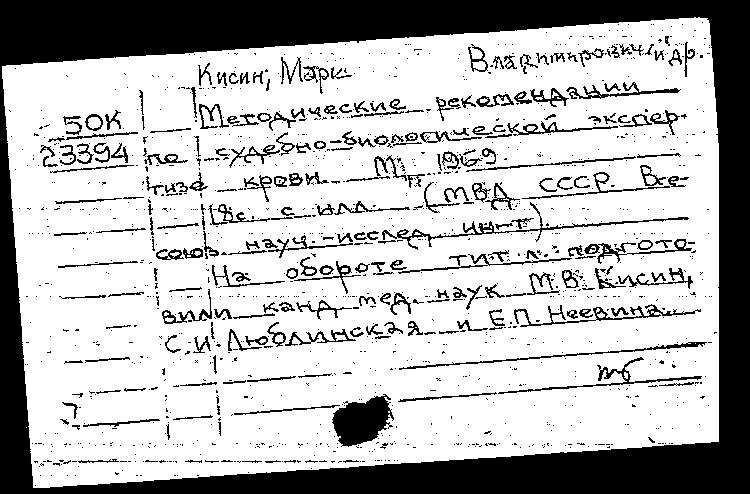 Кисин, Марк Владимирович и др.
50К Методические рекомендации
23394 по судебно-биологической экспер-
тизе крови. М., 1969.
18с. с илл. (МВД СССР. Все-
союз. науч.-исслед. ин-т).
На обороте тит.л.: подгото-
вили канд. мед. наук М.В. Кисин,
С.И. Люблинская и Е.П. Неевина.
тб
7